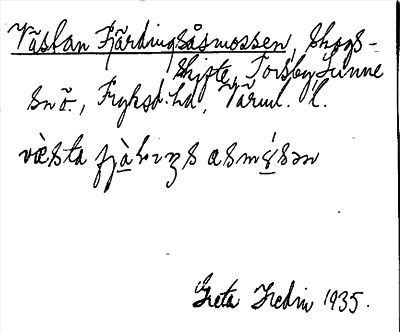 Västan Fjärdingsåsmossen, skogs-
skifte, Torsby, Sunne
sn ö., Fryksd. hd, Värml. l.
væsta
Greta Hedin 1935.